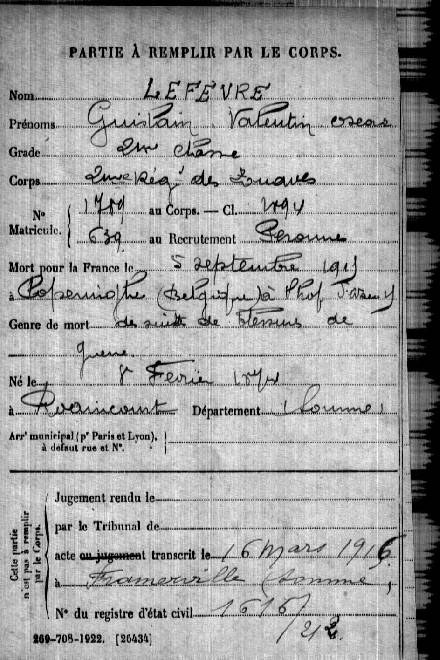 PARTIE À REMPLIR PAR LE CORPS.
Nom LEFEVRE
Prénoms Guislain Valentin oscar
Grade 2me classe
Corps 2me Régt des Zouaves
Nº Matricule. 1789 au Corps. — Cl. 1894
639 au Recrutement Peronne
Mort pour la France le 5 septembre 191
à (Belgique) à
Genre de mort de suites de blessures de
guerre
Né le 8 Fevrier 1874
à Département (Somme)
Arrt municipal (pr Paris et Lyon),
à défaut rue et Nº.
Cette partie
n'est pas à remplir
par le Corps.
Jugement rendu le
par le Tribunal de
acte ou jugement transcrit le 16 Mars 1916
à Framerville (Somme)
Nº du registre d'état civil
269-708-1922. [26434]